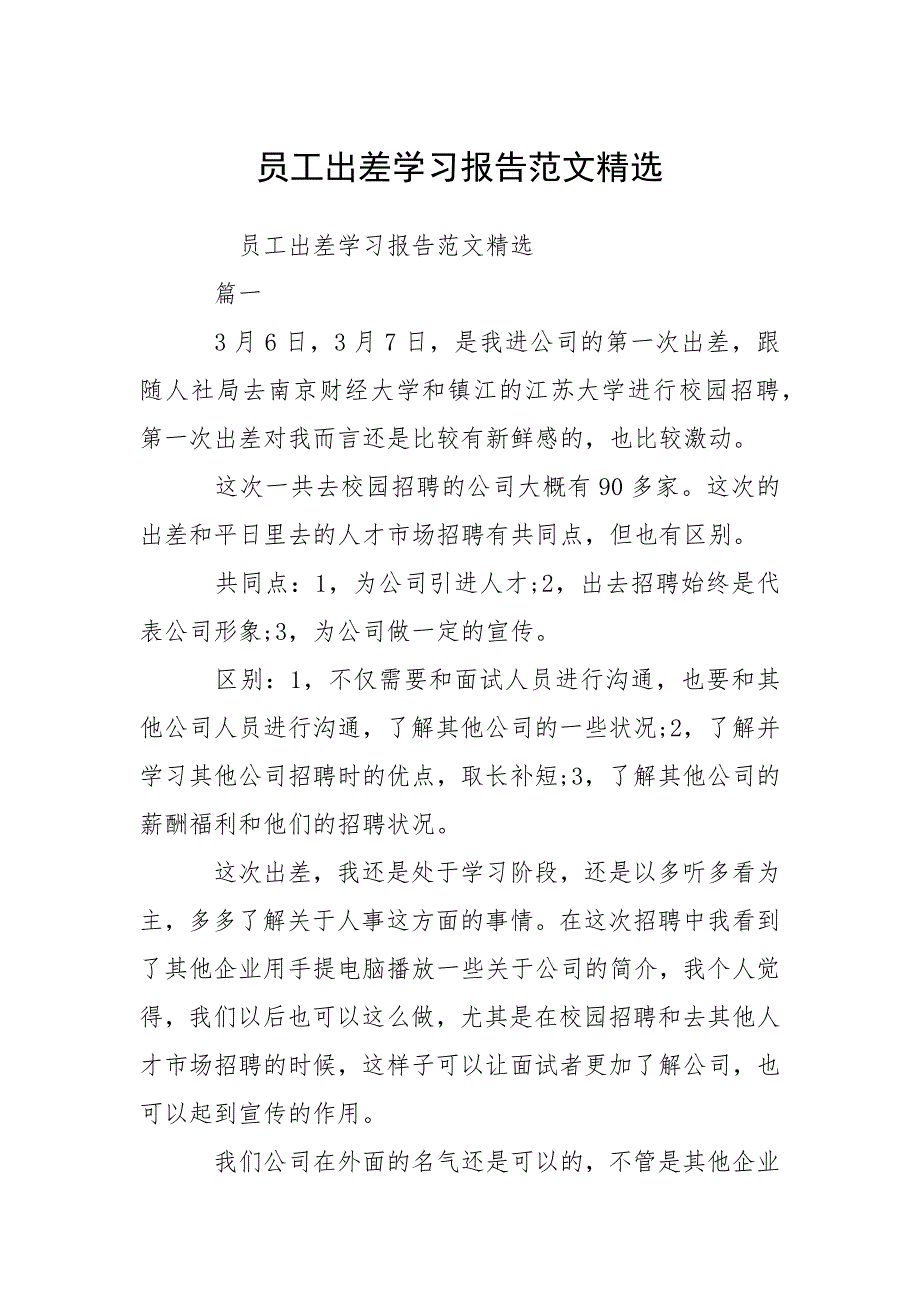 员工出差学习报告范文精选
员工出差学习报告范文精选
篇一
3月6日，3月7日，是我进公司的第一次出差，跟
随人社局去南京财经大学和镇江的江苏大学进行校园招聘，
第一次出差对我而言还是比较有新鲜感的，也比较激动。
这次一共去校园招聘的公司大概有90多家。这次的
出差和平日里去的人才市场招聘有共同点，但也有区别。
共同点：1，为公司引进人才;2，出去招聘始终是代
表公司形象;3，为公司做一定的宣传。
区别：1，不仅需要和面试人员进行沟通，也要和其
他公司人员进行沟通，了解其他公司的一些状况;2，了解并
学习其他公司招聘时的优点，取长补短;3，了解其他公司的
薪酬福利和他们的招聘状况。
这次出差，我还是处于学习阶段，还是以多听多看为
主，多多了解关于人事这方面的事情。在这次招聘中我看到
了其他企业用手提电脑播放一些关于公司的简介，我个人觉
得，我们以后也可以这么做，尤其是在校园招聘和去其他人
才市场招聘的时候，这样子可以让面试者更加了解公司，也
可以起到宣传的作用。
我们公司在外面的名气还是可以的，不管是其他企业